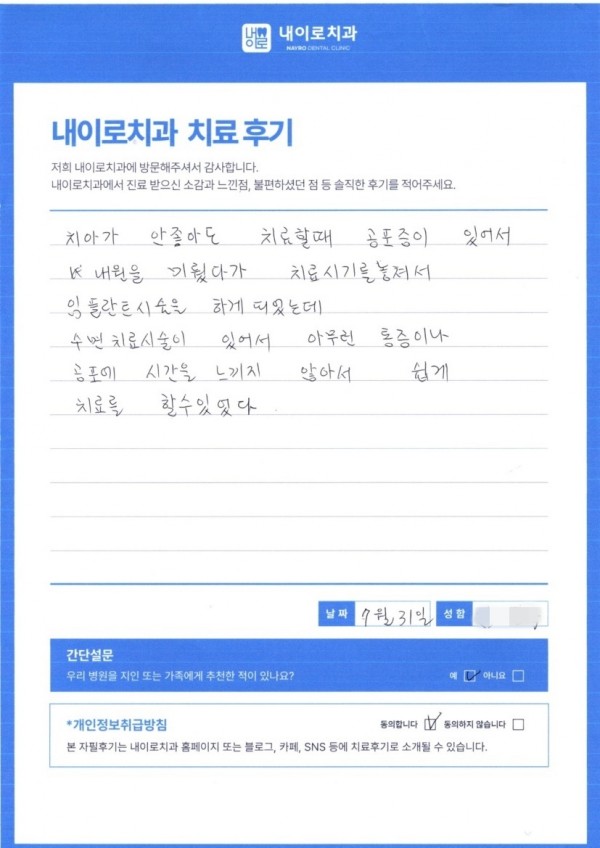 내이로
내이로치과
NAYRO DENTAL CLINIC
내이로치과 치료 후기
저희 내이로치과에 방문해주셔서 감사합니다.
내이로치과에서 진료 받으신 소감과 느낀점, 불편하셨던 점 등 솔직한 후기를 적어주세요.
치아가 안좋아도 치료할때 공포증이 있어서
내원을 미뤘다가 치료시기를 놓져서
임플란트시술을 하게 되었는데
수면 치료시술이 있어서 아무런 통증이나
공포에 시간을 느끼지 않아서 쉽게
치료를 할수있었다
날짜 7월 31일 성함
간단설문
우리 병원을 지인 또는 가족에게 추천한 적이 있나요? 예 아니요
*개인정보취급방침 동의합니다 동의하지 않습니다
본 자필후기는 내이로치과 홈페이지 또는 블로그, 카페, SNS 등에 치료후기로 소개될 수 있습니다.